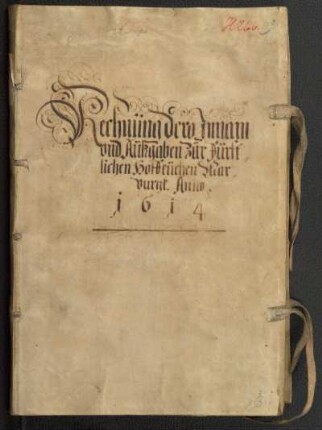 Rechnüng dero Innam
vnd Außgaben Zür Fürst
lichen Hoffküchen Mar
burgk. Anno.
1 6 1 4